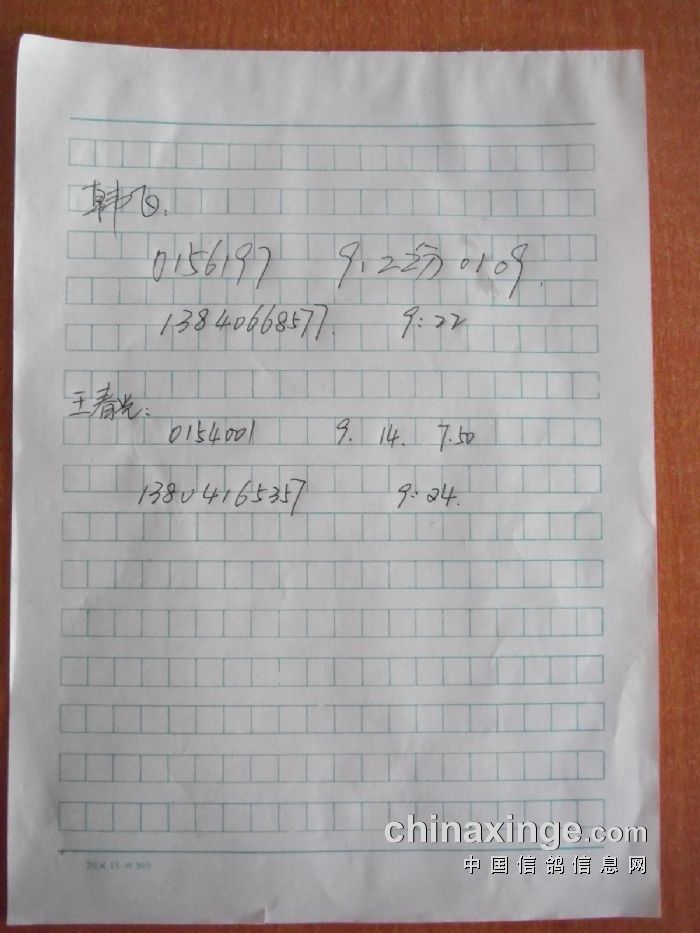 韩飞:
0156197 9.2 分 0109.
13840668577. 9:22
王春光:
0154001 9. 14. 7.50
13804165357 9:24.
20×15=300
chinaxinge.com
中国信鸽信息网